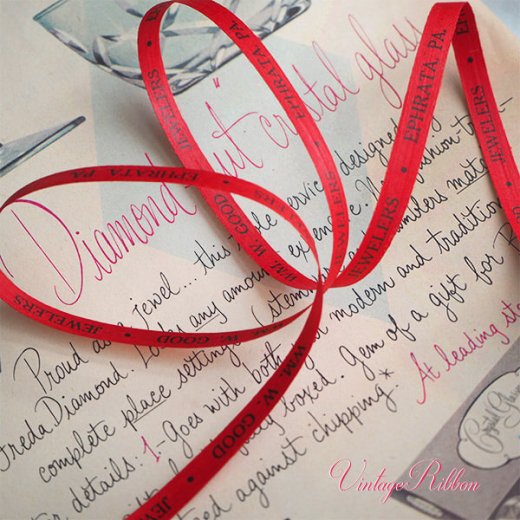 Diamond-cut" crystal glass
Proud as a jewel... this table service designed by
Freda Diamond. Lo ks any amount expensive. New fashion-to
complete place settings (stemware and tumblers mate
for details: 1-Goes with both modern and tradition
boxed. Gem of a gift for
teed against chipping.*
At leading st
JEWELERS • EPHRATA, PA.
WM. W. GOOD • JEWELERS • EPHRATA, PA.
EPHRATA, PA. • WM. W. GOOD • JEWELERS
EPHRATA, PA. • JEWELERS
WM. W. GOOD • JEWELERS
WM. W. GOOD
Vintage Ribbon